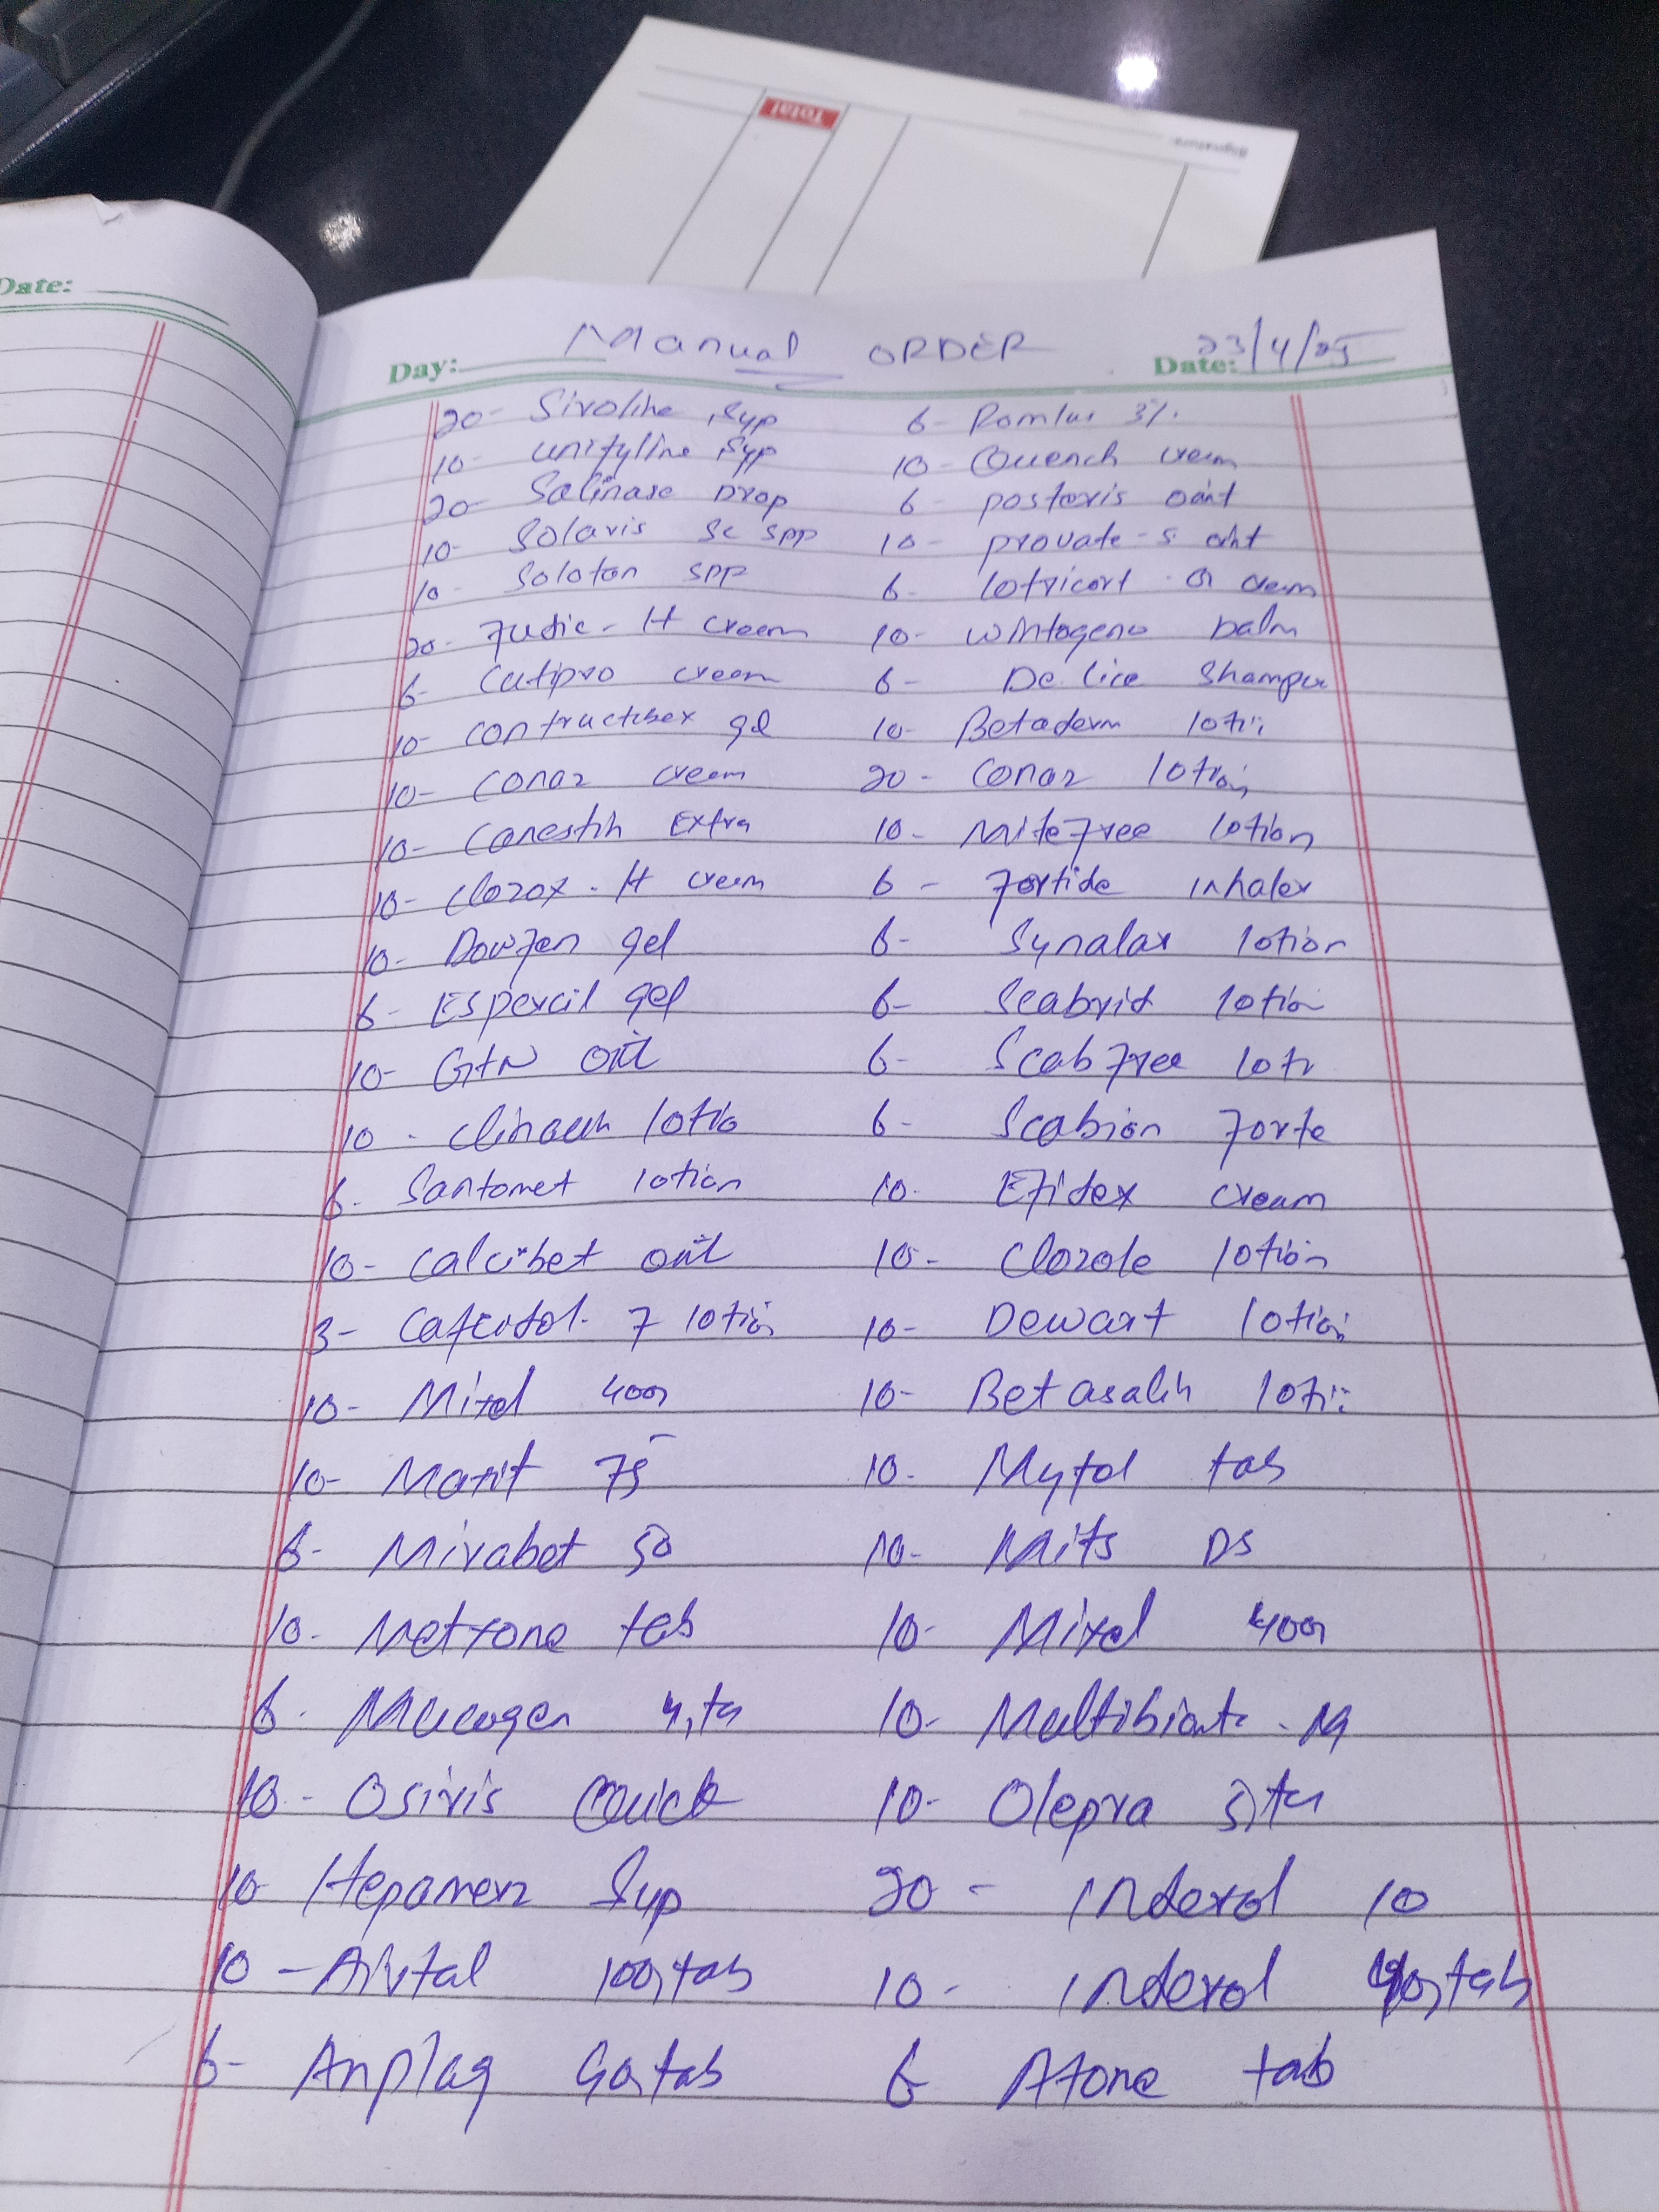 Total
Signature:
Date:
Manual ORDER
Day: Date: 23/4/25
20- Sivoline Syp 6- Romlus 3%
10- Unifyline Syp 10- Quench cream
20- Salinase Drop 6- posteris oint
10- Solaris Sc spp 10- provate-s oint
10- Soloton spp 6- lotricort - G cream
20- Fudic-H cream 10- wintogeno balm
6- Cutipro cream 6- De lice Shampu
10- contructubex gel 10- Betaderm loti
10- conaz cream 20- Conaz lotion
10- Canestin Extra 10- Mitefree lotion
10- clozox-H cream 6- Fortide inhaler
10- Dowfen gel 6- Synalar lotion
6- Espercil gel 6- Scabrid lotion
10- GTN oint 6- Scabfree loti
10- clinacin lotio 6- Scabion Forte
6- Santomet lotion 10- Efidex cream
10- calcibet oint 10- Clozole lotion
3- F lotion 10- Dewart lotion
10- Mixel 400 10- Betasalin loti
10- Maxit 75 10- Mytol tab
6- Mirabet 50 10- Mits DS
10- Metrone tab 10- Mixel 400
6- Mucogen 10- Multibionta - M
10- Osiris Quick 10- Olepra
10- Hepamerz Syp 20- Inderol 10
10- Airtal 100,tab 10- Inderol 40,tab
6- Anplag tab 6 Atone tab